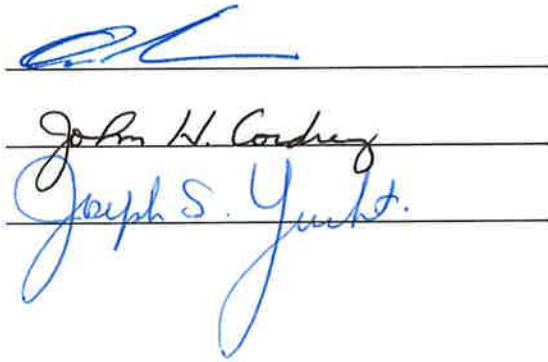 John H. Cordrey
Joseph S. Yucht.